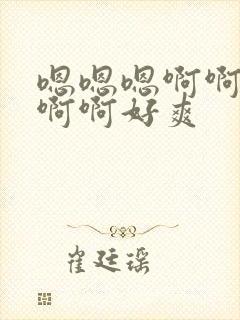 嗯嗯嗯啊啊
啊啊好爽
崔廷瑶